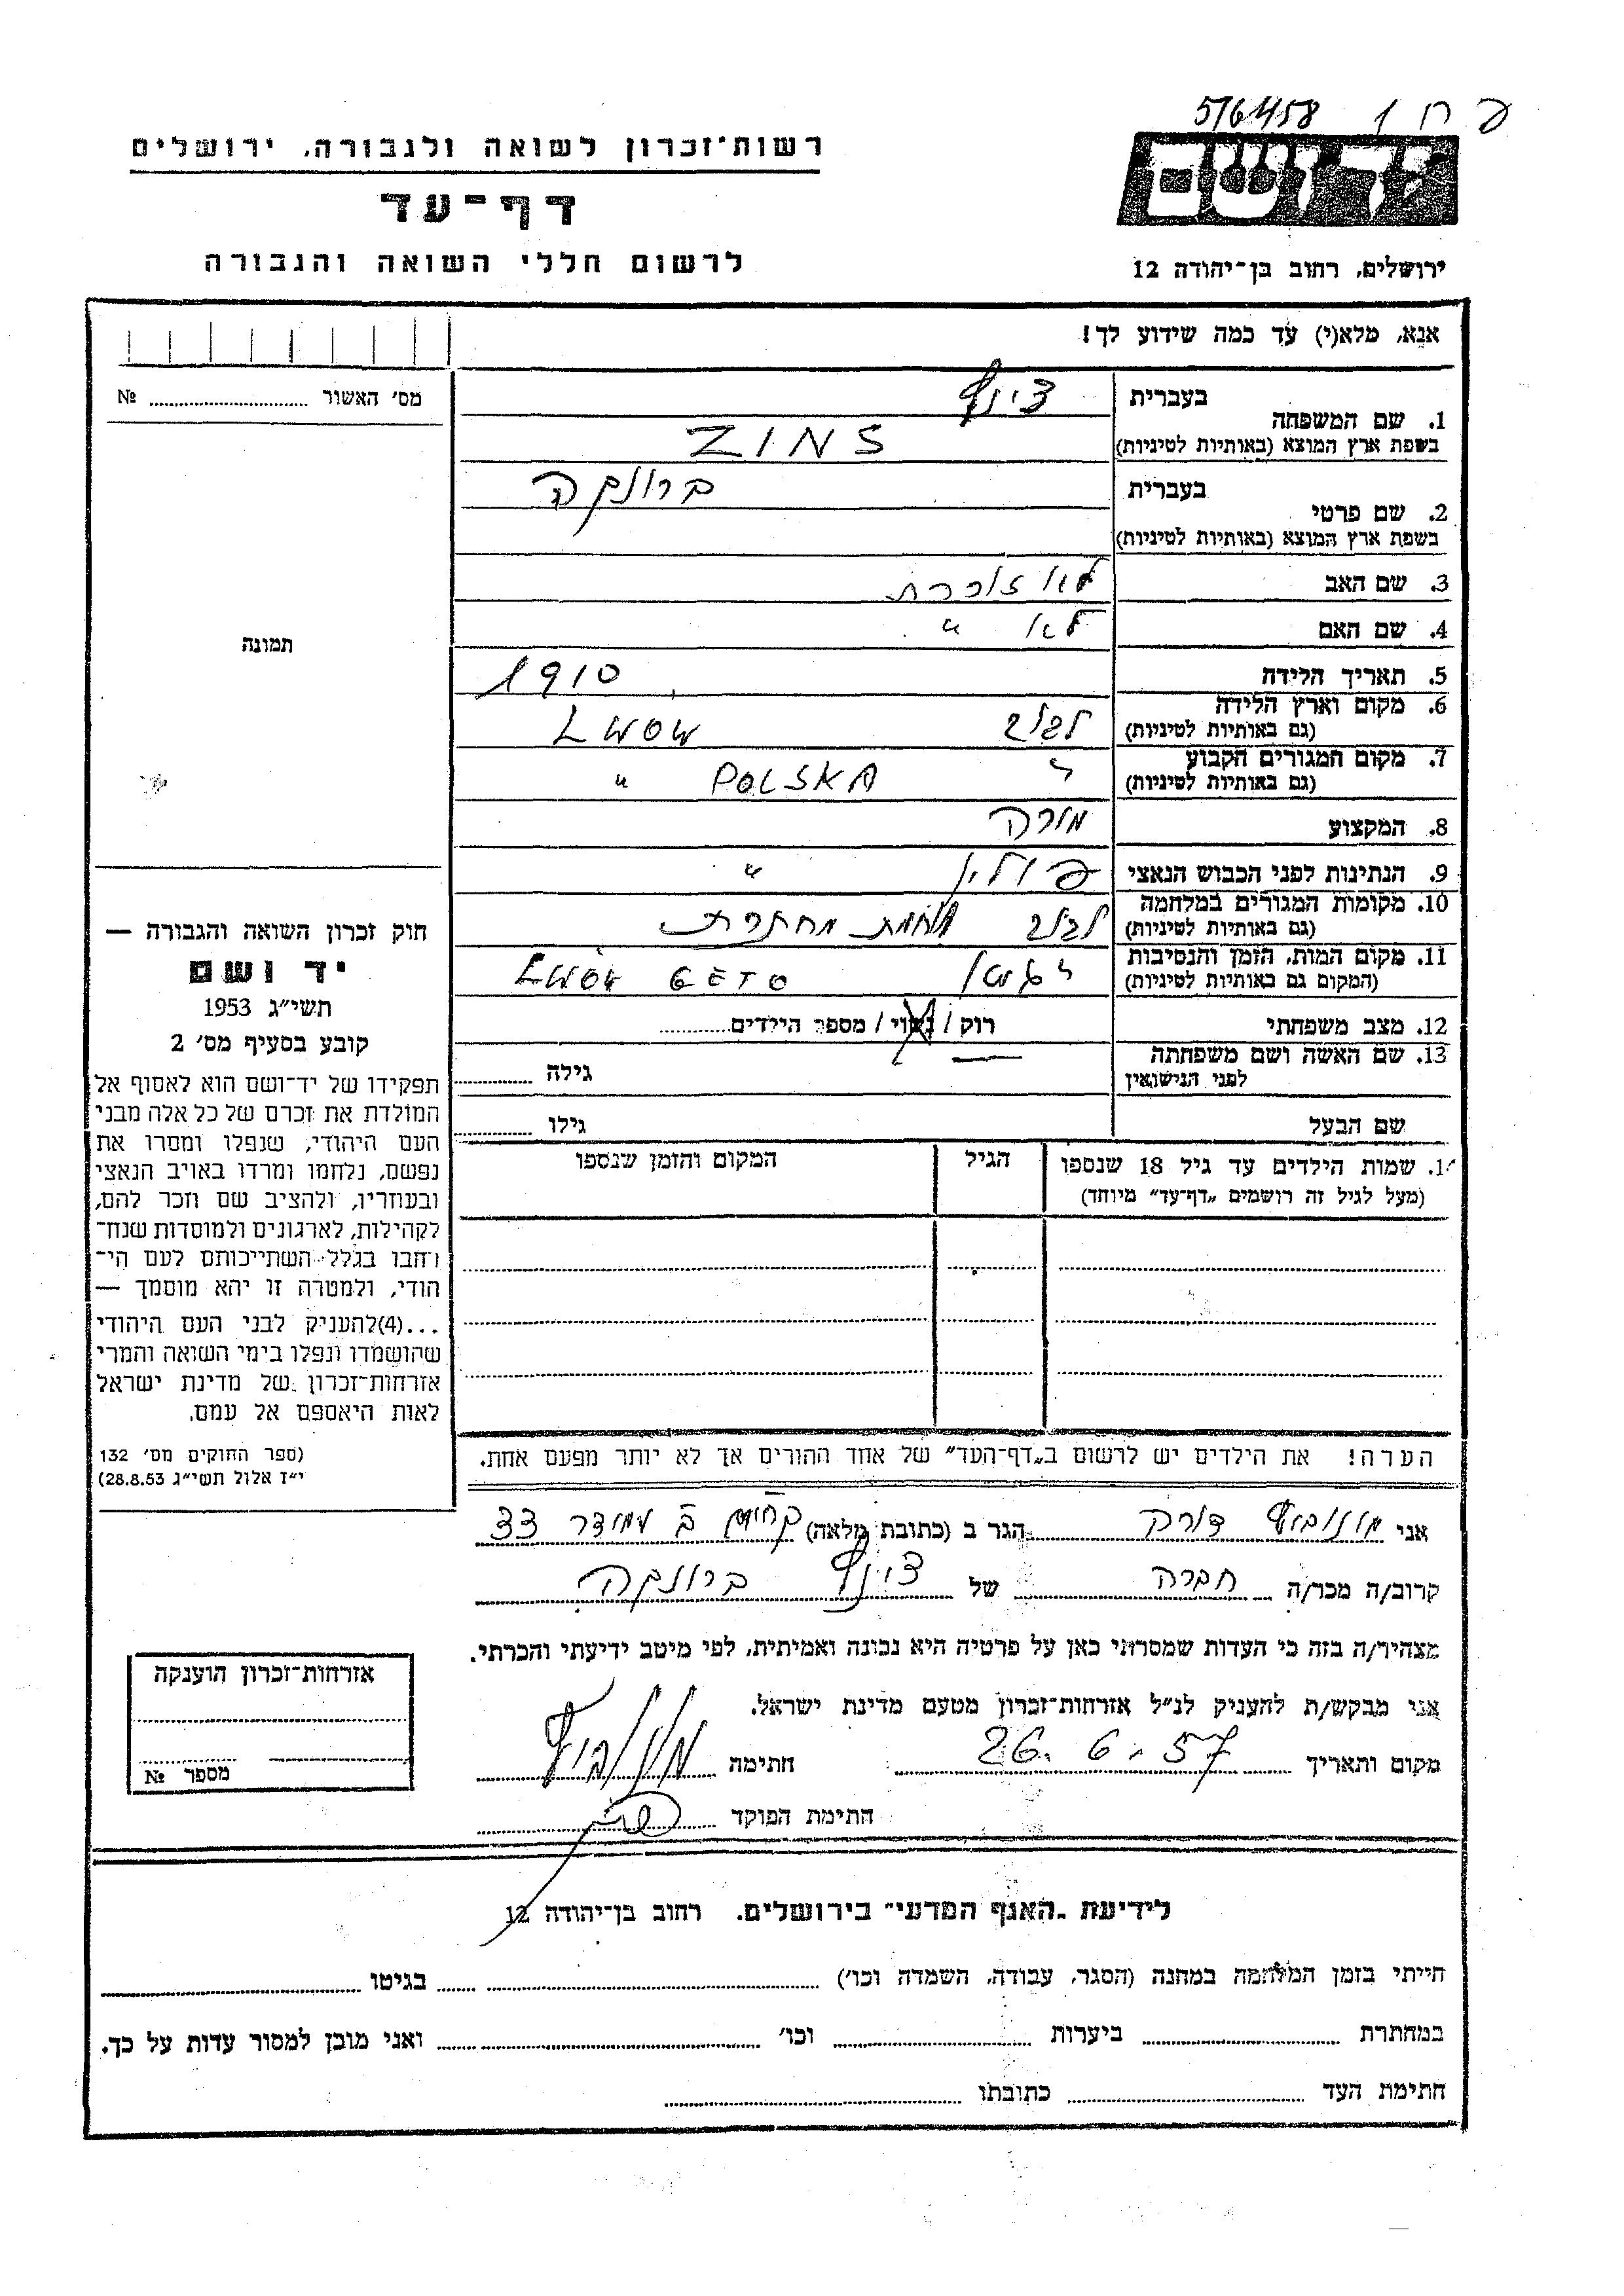 5/6458 ח 1
רשות־זכרון לשואה ולגבורה, ירושלים
דף־עד
לרשום חללי השואה והגבורה
יד ושם
ירושלים, רחוב בן־יהודה 12
אנא, מלא(י) עד כמה שידוע לך!
מס׳ האשור № 
תמונה
1. שם המשפחה בעברית צינס
בשפת ארץ המוצא (באותיות לטיניות) ZINS
2. שם פרטי בעברית ברונקה
בשפת ארץ המוצא (באותיות לטיניות)
3. שם האב לא זוכרת
4. שם האם לא "
5. תאריך הלידה 1910
6. מקום וארץ הלידה לבוב LWOW
(גם באותיות לטיניות)
7. מקום המגורים הקבוע " POLSKA "
(גם באותיות לטיניות)
8. המקצוע מורה
9. הנתינות לפני הכבוש הנאצי פולין "
10. מקומות המגורים במלחמה לבוב מחתרת
(גם באותיות לטיניות)
11. מקום המות, הזמן והנסיבות LWÓW GETO
(המקום גם באותיות לטיניות)
12. מצב משפחתי רוק / נשוי / מספר הילדים
13. שם האשה ושם משפחתה גילה
לפני הנישואין
שם הבעל גילו
חוק זכרון השואה והגבורה —
יד ושם
תשי״ג 1953
קובע בסעיף מס׳ 2
תפקידו של יד־ושם הוא לאסוף אל
המולדת את זכרם של כל אלה מבני
העם היהודי, שנפלו ומסרו את
נפשם, נלחמו ומרדו באויב הנאצי
ובעוזריו, ולהציב שם וזכר להם,
לקהילות, לארגונים ולמוסדות שנח־
רחבו בגלל השתייכותם לעם הי־
הודי, ולמטרה זו יהא מוסמך —
...(4)להעניק לבני העם היהודי
שהושמדו ונפלו בימי השואה והמרי
אזרחות־זכרון של מדינת ישראל
לאות היאספם אל עמם.
(ספר החוקים מס׳ 132
י״ז אלול תשי״ג 28.8.53)
14. שמות הילדים עד גיל 18 שנספו הגיל המקום והזמן שנספו
(מעל לגיל זה רושמים „דף־עד״ מיוחד)
הערה! את הילדים יש לרשום ב„דף־העד״ של אחד ההורים אך לא יותר מפעם אחת.
אני דורה הגר ב (כתובת מלאה) 33
קרוב/ה מכר/ה חברה של צינס ברונקה
מצהיר/ה בזה כי העדות שמסרתי כאן על פרטיה היא נכונה ואמיתית, לפי מיטב ידיעתי והכרתי.
אני מבקש/ת להעניק לנ״ל אזרחות־זכרון מטעם מדינת ישראל.
מקום ותאריך 26. 6. 57 חתימה
חתימת הפוקד
אזרחות־זכרון הוענקה
מספר №
לידיעת „האגף המדעי״ בירושלים. רחוב בן־יהודה 12
הייתי בזמן המלחמה במחנה (הסגר, עבודה, השמדה וכו׳) בגיטו
במחתרת ביערות וכו׳ ואני מוכן למסור עדות על כך.
חתימת העד כתובתו